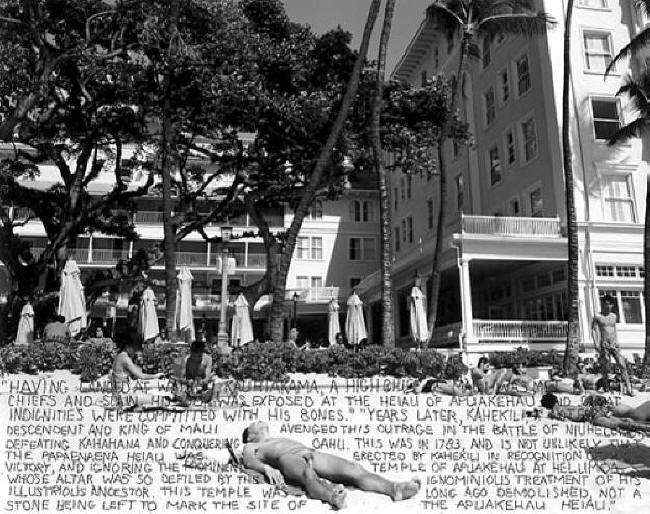 "HAVING LANDED AT KAUHIAKAMA, A HIGH CHIEF MAUI WAS MET
CHIEFS AND SLAIN, HIS WAS EXPOSED AT THE HEIAU OF APUAKEHAU AND GREAT
INDIGNITIES WERE COMMITTED WITH HIS BONES." "YEARS LATER, KAHEKILI
DESCENDENT AND KING OF MAUI AVENGED THIS OUTRAGE IN THE BATTLE OF
DEFEATING KAHAHANA AND CONQUERING OAHU. THIS WAS IN 1783, AND IS NOT UNLIKELY THAT
THE PAPAENAENA HEIAU WAS ERECTED BY KAHEKILI IN RECOGNITION OF
VICTORY, AND IGNORING THE TEMPLE OF APUAKEHAU AT HELUMOA
WHOSE ALTAR WAS SO DEFILED BY THE IGNOMINIOUS TREATMENT OF HIS
ILLUSTRIOUS ANCESTOR. THIS TEMPLE WAS LONG AGO DEMOLISHED, NOT A
STONE BEING LEFT TO MARK THE SITE OF THE APUAKEHAU HEIAU."